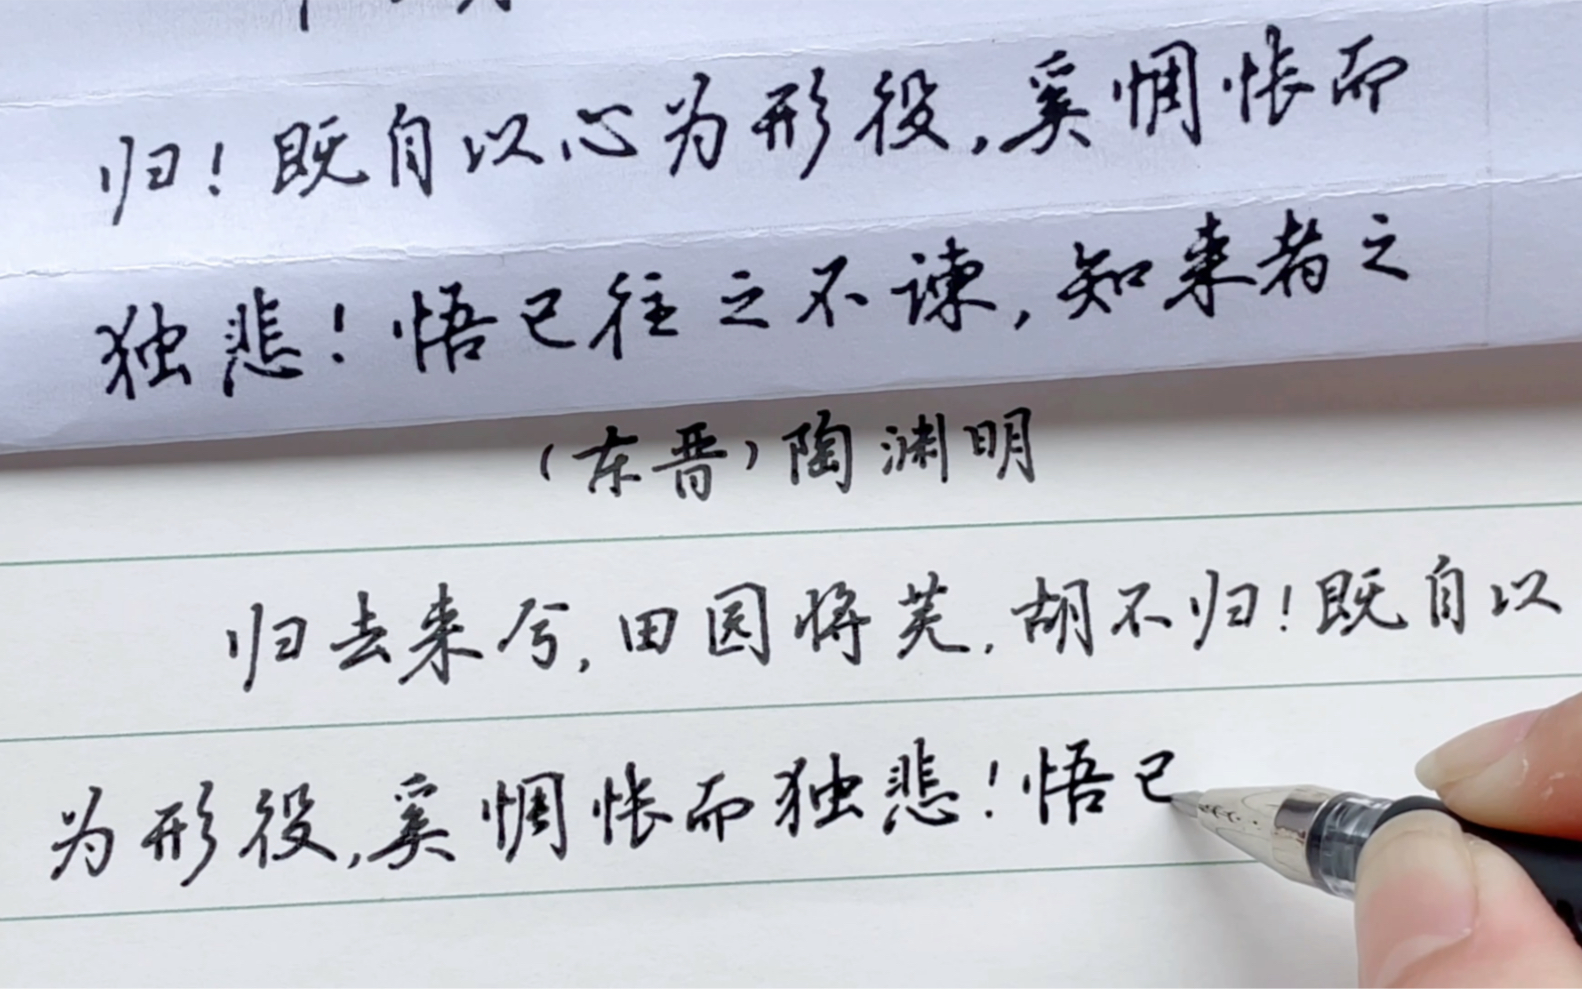 归！既自以心为形役，奚惆怅而
独悲！悟已往之不谏，知来者之
（东晋）陶渊明
归去来兮，田园将芜，胡不归！既自以
为形役，奚惆怅而独悲！悟已